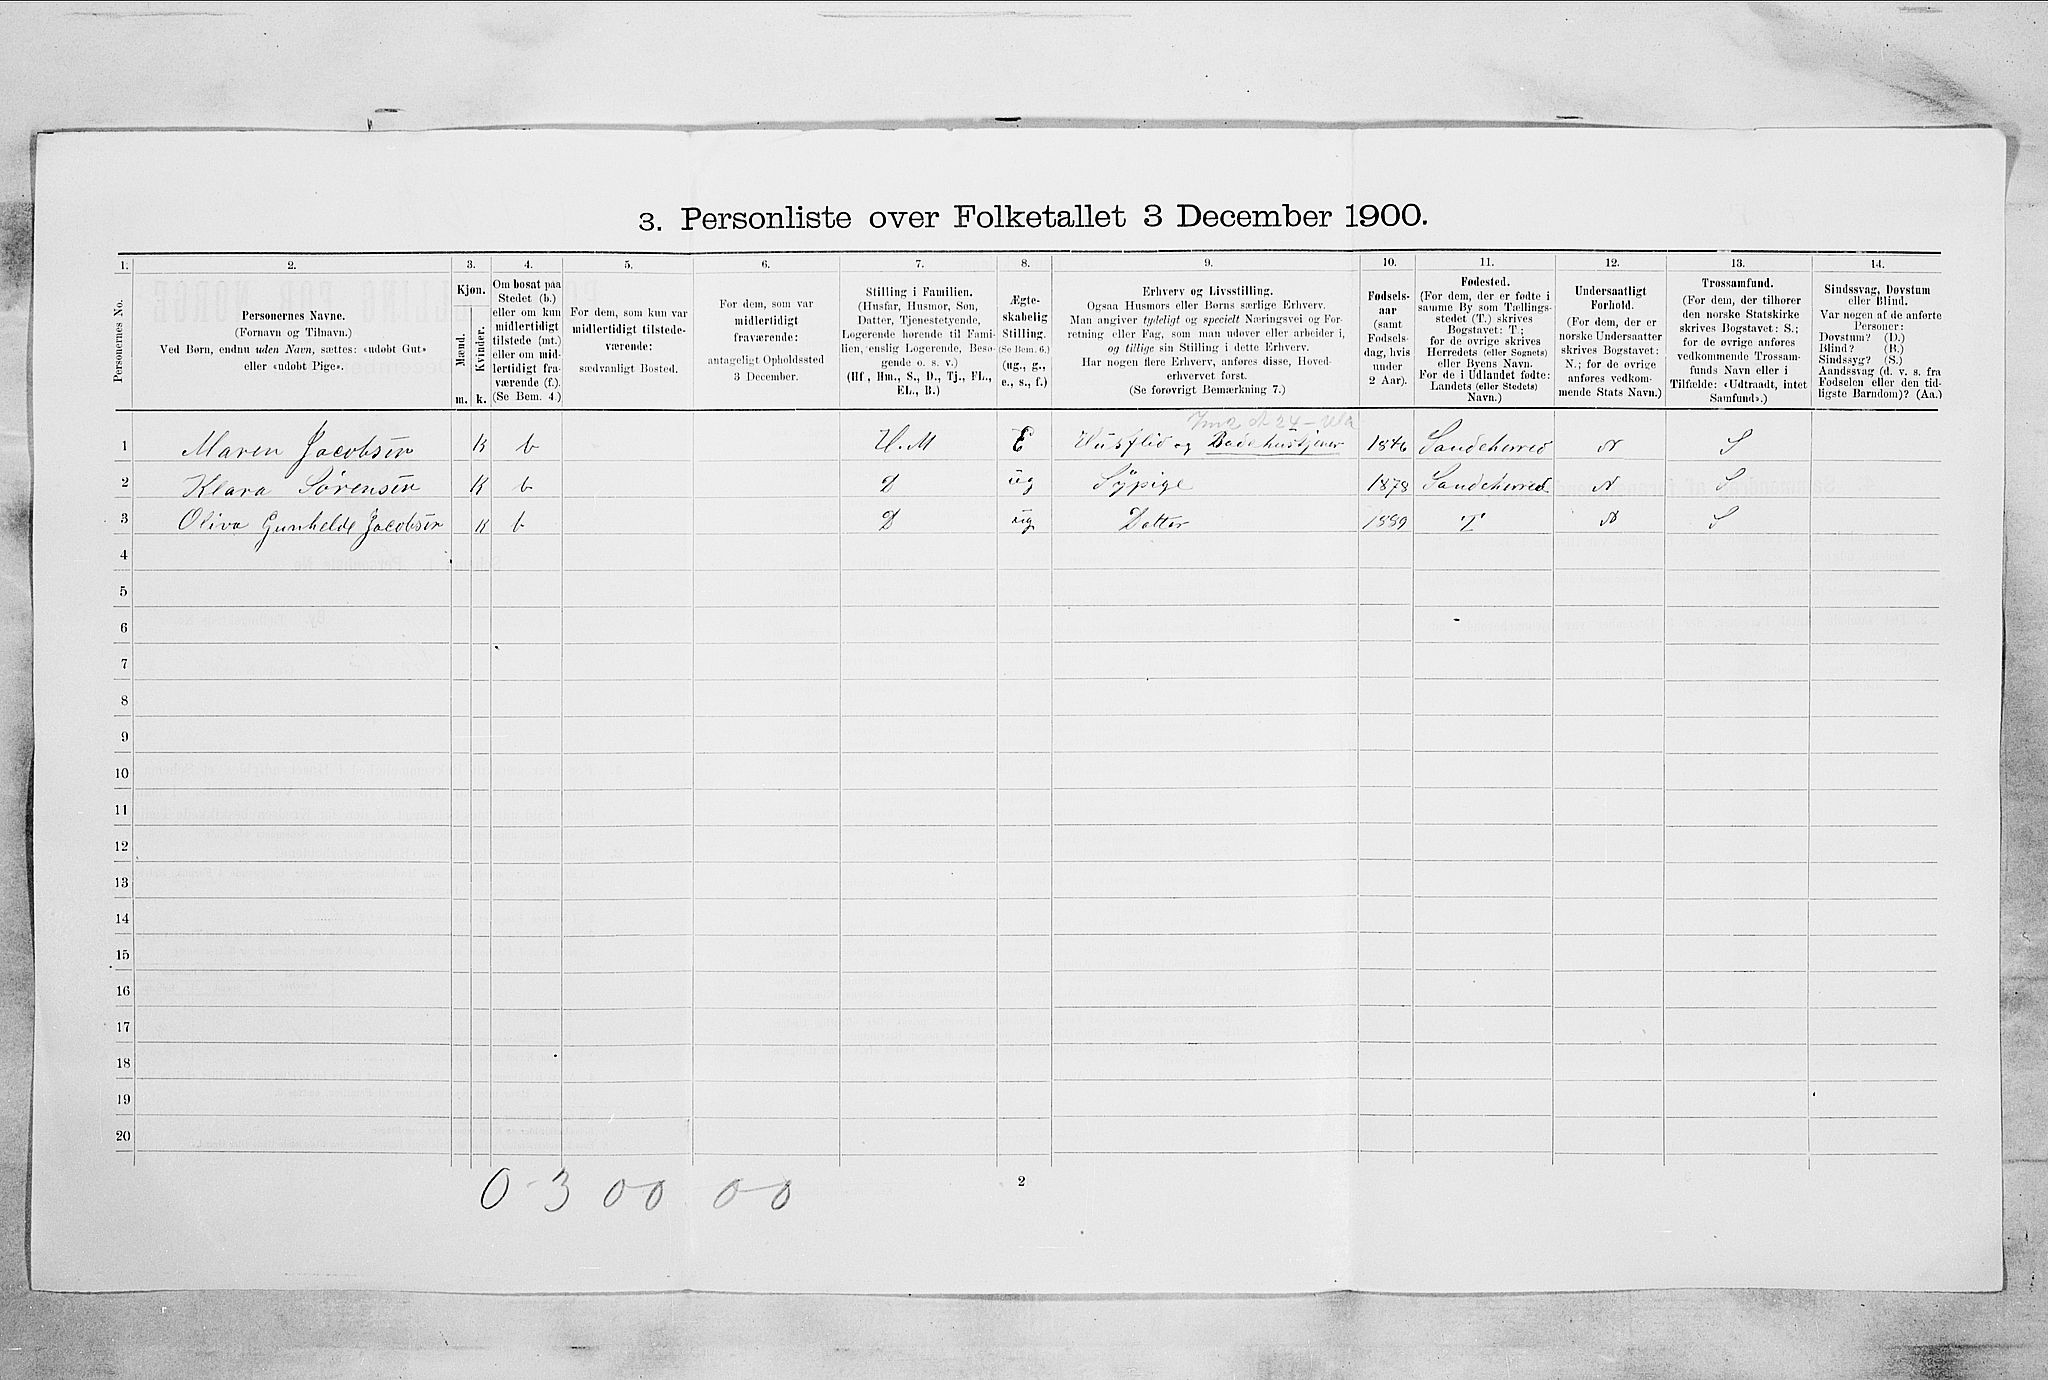 3. Personliste over Folketallet 3 December 1900.
1. 2. 3. 4. 5. 6. 7. 8. 9. 10. 11. 12. 13. 14.
Personernes No.
Personernes Navne.
(Fornavn og Tilnavn.)
Ved Børn, endnu uden Navn, sættes: «udøbt Gut»
eller «udøbt Pige».
Kjøn.
Mænd.
Kvinder.
m. k.
Om bosat paa
Stedet (b.)
eller om kun
midlertidigt
tilstede (mt.)
eller om mid-
lertidigt fra-
værende (f.).
(Se Bem. 4.)
For dem, som kun var
midlertidigt tilstede-
værende:
sædvanligt Bosted.
For dem, som var
midlertidigt
fraværende:
antageligt Opholdssted
3 December.
Stilling i Familien.
(Husfar, Husmor, Søn,
Datter, Tjenestetyende,
Logerende hørende til Fami-
lien, enslig Logerende, Besø-
gende o. s. v.)
(Hf., Hm., S., D., Tj., FL.,
EL., B.)
Ægte-
skabelig
Stilling.
(Se Bem. 6.)
(ug., g.,
e., s., f.)
Erhverv og Livsstilling.
Ogsaa Husmors eller Børns særlige Erhverv.
Man angiver tydeligt og specielt Næringsvei og For-
retning eller Fag, som man udøver eller arbeider i,
og tillige sin Stilling i dette Erhverv.
Har nogen flere Erhverv, anføres disse, Hoved-
erhvervet først.
(Se forøvrigt Bemærkning 7.)
Fødsels-
aar
(samt
Fødsels-
dag, hvis
under
2 Aar).
Fødested.
(For dem, der er fødte i
samme By som Tællings-
stedet (T.) skrives
Bogstavet: T.;
for de øvrige skrives
Herredets (eller Sognets)
eller Byens Navn.
For de i Udlandet fødte:
Landets (eller Stedets)
Navn.)
Undersaatligt
Forhold.
(For dem, der er
norske Undersaatter
skrives Bogstavet:
N.; for de øvrige
anføres vedkom-
mende Stats Navn.)
Trossamfund.
(For dem, der tilhører
den norske Statskirke
skrives Bogstavet: S.;
for de øvrige anføres
vedkommende Trossam-
funds Navn eller i
Tilfælde: «Udtraadt, intet
Samfund».)
Sindssvag, Døvstum
eller Blind.
Var nogen af de anførte
Personer:
Døvstum? (D.)
Blind? (B.)
Sindssyg? (S.)
Aandssvag (d. v. s. fra
Fødselen eller den tid-
ligste Barndom)? (Aa.)
1 Maren Jacobsen K b H.M E Husflid og Badehustjener 1846 Sandeherred N S
2 Klara Sørensen K b D ug Sypige 1878 Sandeherred N S
3 Oliva Gunhelde Jacobsen K b D ug Datter 1889 T N S
4
5
6
7
8
9
10
11
12
13
14
15
16
17
18
19
20
0-3 00 00
2